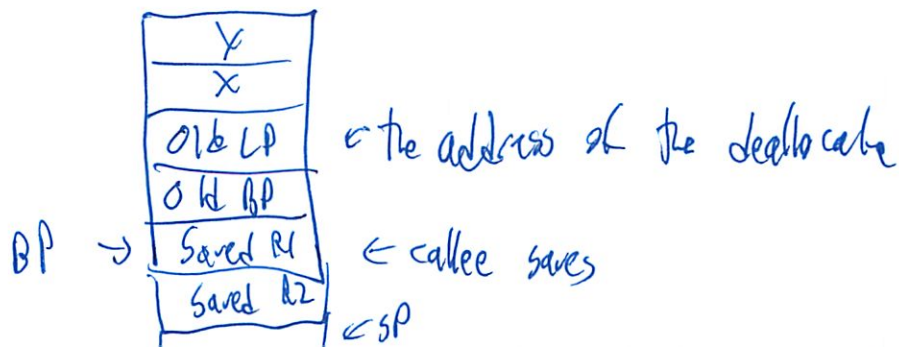 Y
X
Old LP ← the address of the deallocate
Old BP
BP → Saved R1 ← callee saves
Saved R2
← SP